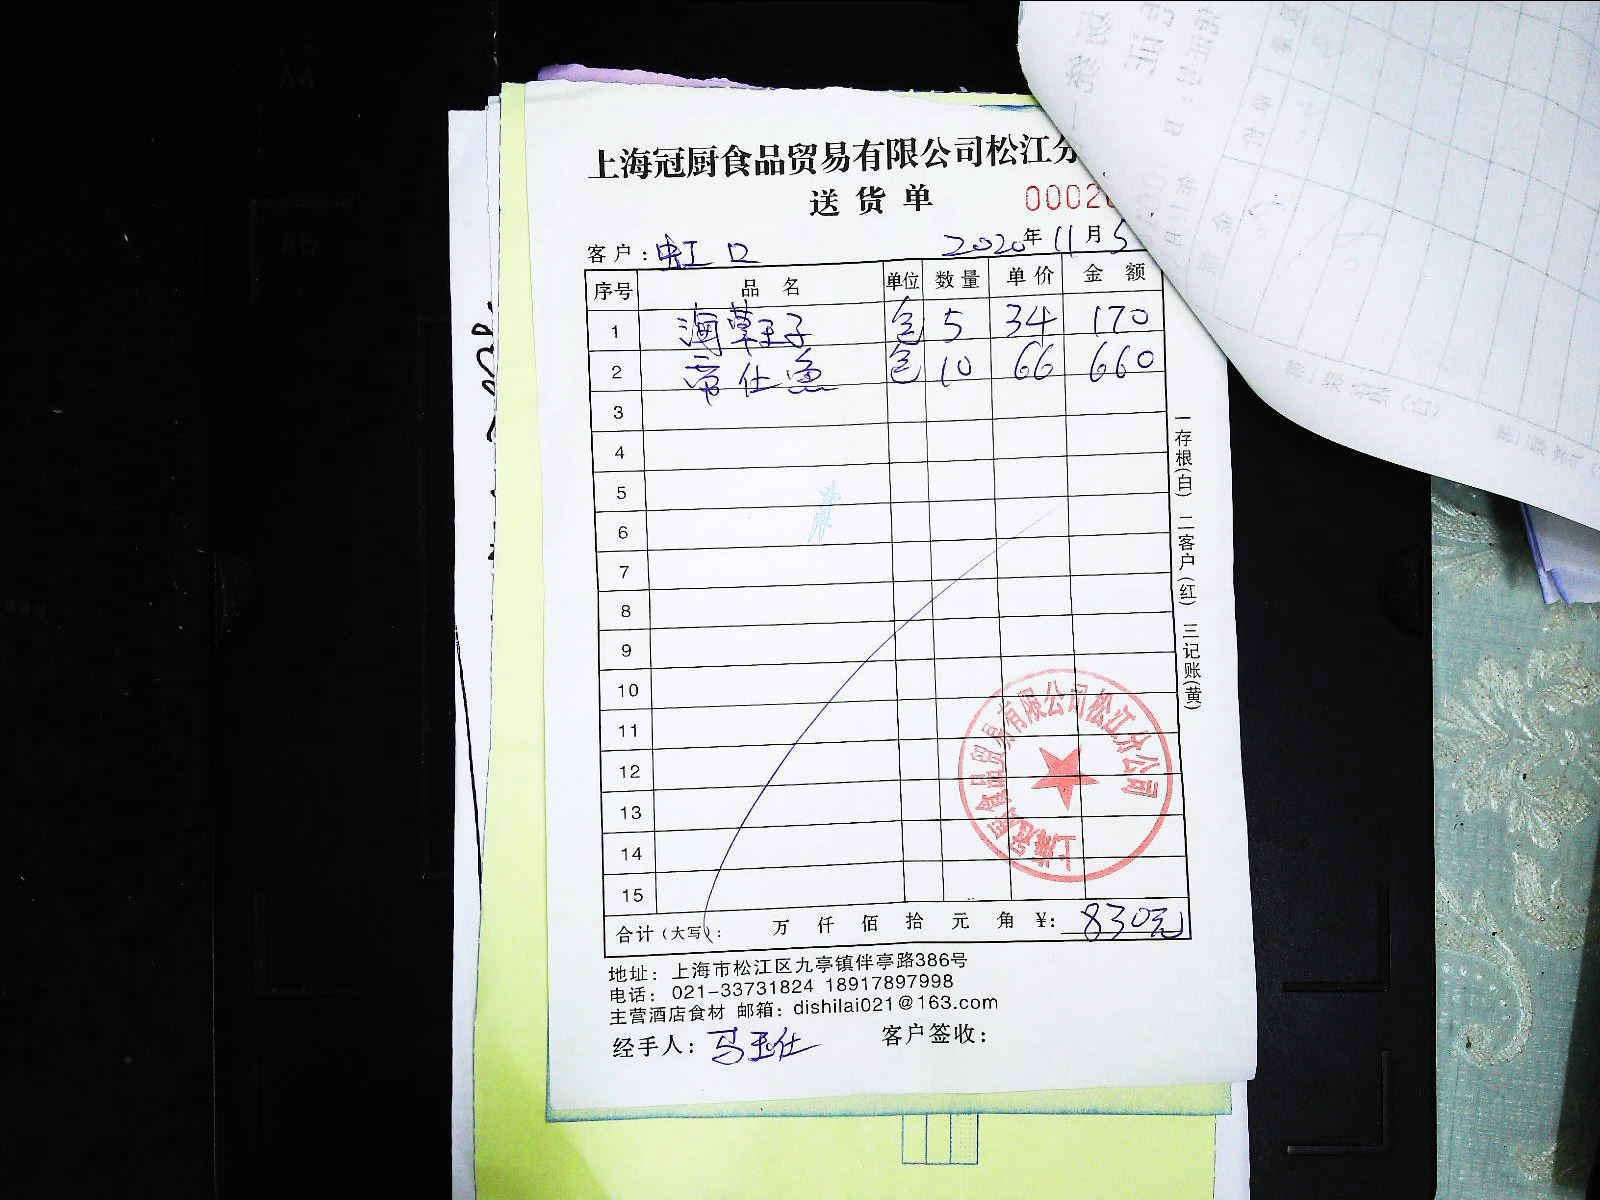 上海冠厨食品贸易有限公司松江分
送货单
0002
客户：虹口 2020年11月5
序号 品名 单位 数量 单价 金额
1 海草王子 包 5 34 170
2 帝仕鱼 包 10 66 660
3
4
5
6
7
8
9
10
11
12
13
14
15
合计（大写）： 万 仟 佰 拾 元 角 ¥：830元
一存根（白） 二客户（红） 三记账（黄）
上海冠厨食品贸易有限公司松江分公司
地址：上海市松江区九亭镇伴亭路386号
电话：021-33731824 18917897998
主营酒店食材 邮箱：dishilai021@163.com
经手人：马玉仕 客户签收：